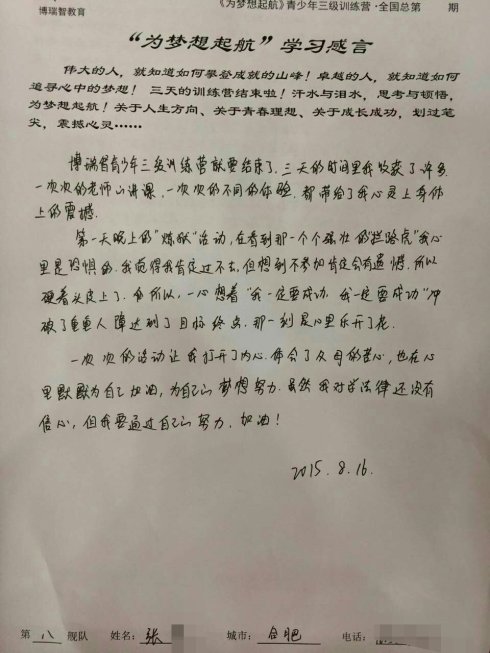 博瑞智教育
《为梦想起航》青少年三级训练营·全国总第 期
“为梦想起航”学习感言
伟大的人，就知道如何攀登成就的山峰！卓越的人，就知道如何
追寻心中的梦想！ 三天的训练营结束啦！汗水与泪水，思考与顿悟，
为梦想起航！关于人生方向、关于青春理想、关于成长成功，划过笔
尖，震撼心灵……
博瑞智青少年三级训练营就要结束了，三天的时间里我收获了许多，
一次次的老师的讲课，一次次的不同的体验，都带给了我心灵上身体
上的震撼。
第一天晚上的“炼狱”活动，在看到那一个个强壮的“拦路虎”我心
里是恐惧的，我觉得我肯定过不去，但想到不参加肯定会有遗憾，所以
硬着头皮上了。 所以，一心想着“我一定要成功，我一定要成功”冲
破了重重人障达到了目标终点，那一刻是心里乐开了花。
一次次的活动让我打开了内心，体会了父母的苦心，也在心
里默默为自己加油，为自己的梦想努力。虽然我对学法律还没有
信心，但我要通过自己的努力，加油！
2015.8.16.
第 八 舰队 姓名：张 城市：合肥 电话：